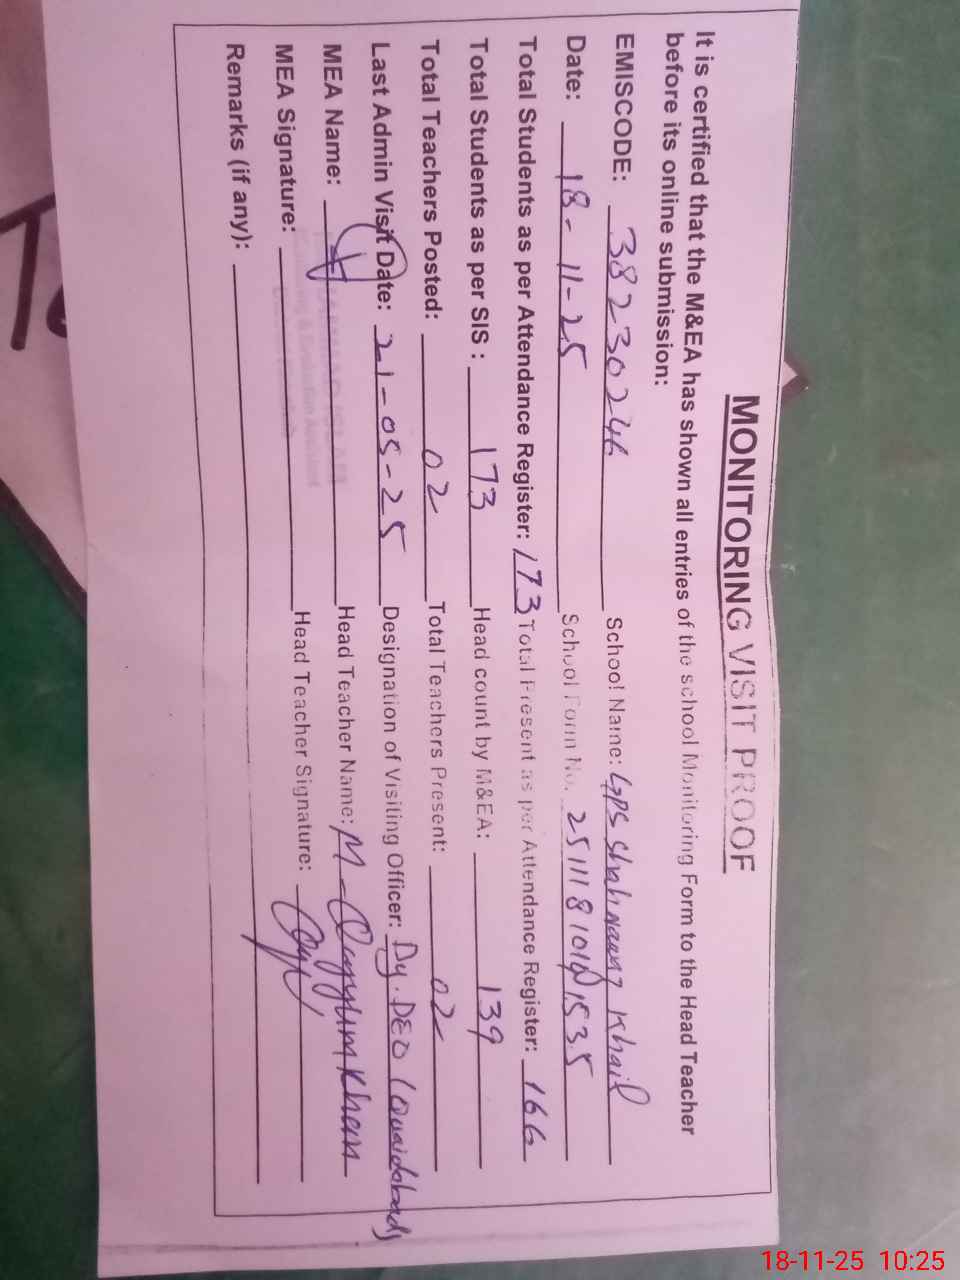 MONITORING VISIT PROOF
It is certified that the M&EA has shown all entries of the school Monitoring Form to the Head Teacher
before its online submission:
EMISCODE: 38230246 School Name: GPS Shah Nawaz Khail
Date: 18-11-25 School Form No. 
Total Students as per Attendance Register: 173 Total Present as per Attendance Register: 166
Total Students as per SIS: 173 Head count by M&EA: 139
Total Teachers Posted: 02 Total Teachers Present: 02
Last Admin Visit Date: 21-05-25 Designation of Visiting Officer: Dy. DEO (Quaidabad)
MEA Name: Head Teacher Name: M-Qayyum Khan
MEA Signature: Head Teacher Signature:
Remarks (if any):
18-11-25 10:25